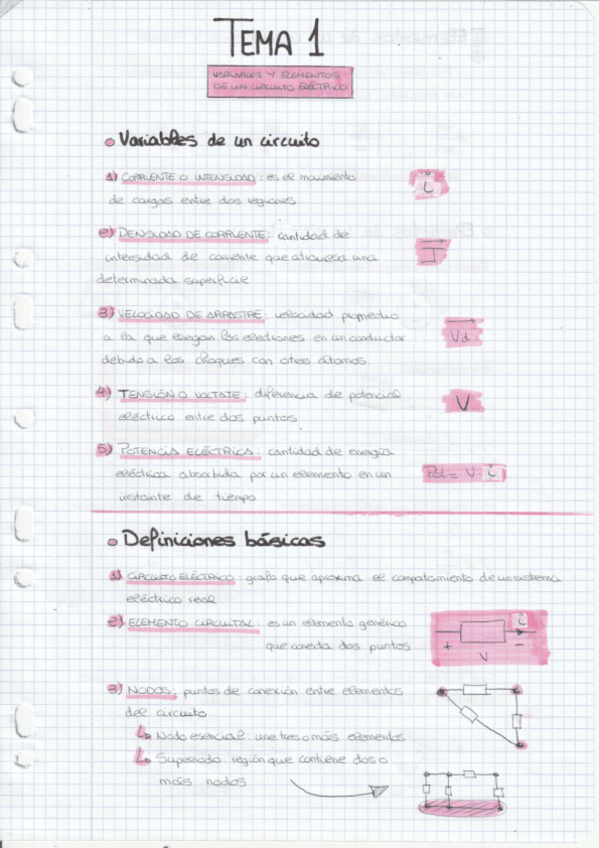 TEMA 1
VARIABLES Y ELEMENTOS
DE UN CIRCUITO ELÉCTRICO
Variables de un circuito
1) CORRIENTE O INTENSIDAD: es el movimiento
de cargas entre dos regiones
i
2) DENSIDAD DE CORRIENTE: cantidad de
intensidad de corriente que atraviesa una
determinada superficie
J
3) VELOCIDAD DE ARRASTRE: velocidad promedio
a la que llegan los electrones en un conductor
debido a los choques con otros átomos.
Vd
4) TENSIÓN O VOLTAJE: diferencia de potencial
eléctrico entre dos puntos.
V
5) POTENCIA ELÉCTRICA: cantidad de energía
eléctrica absorbida por un elemento en un
instante de tiempo
Pot = V · i
Definiciones básicas
1) CIRCUITO ELÉCTRICO: grafo que aproxima el comportamiento de un sistema
eléctrico real
2) ELEMENTO CIRCUITAL: es un elemento genérico
que conecta dos puntos
i
+ V -
3) NODOS: puntos de conexión entre elementos
del circuito
Nodo esencial: une tres o más elementos
Supernodo: región que contiene dos o
más nodos